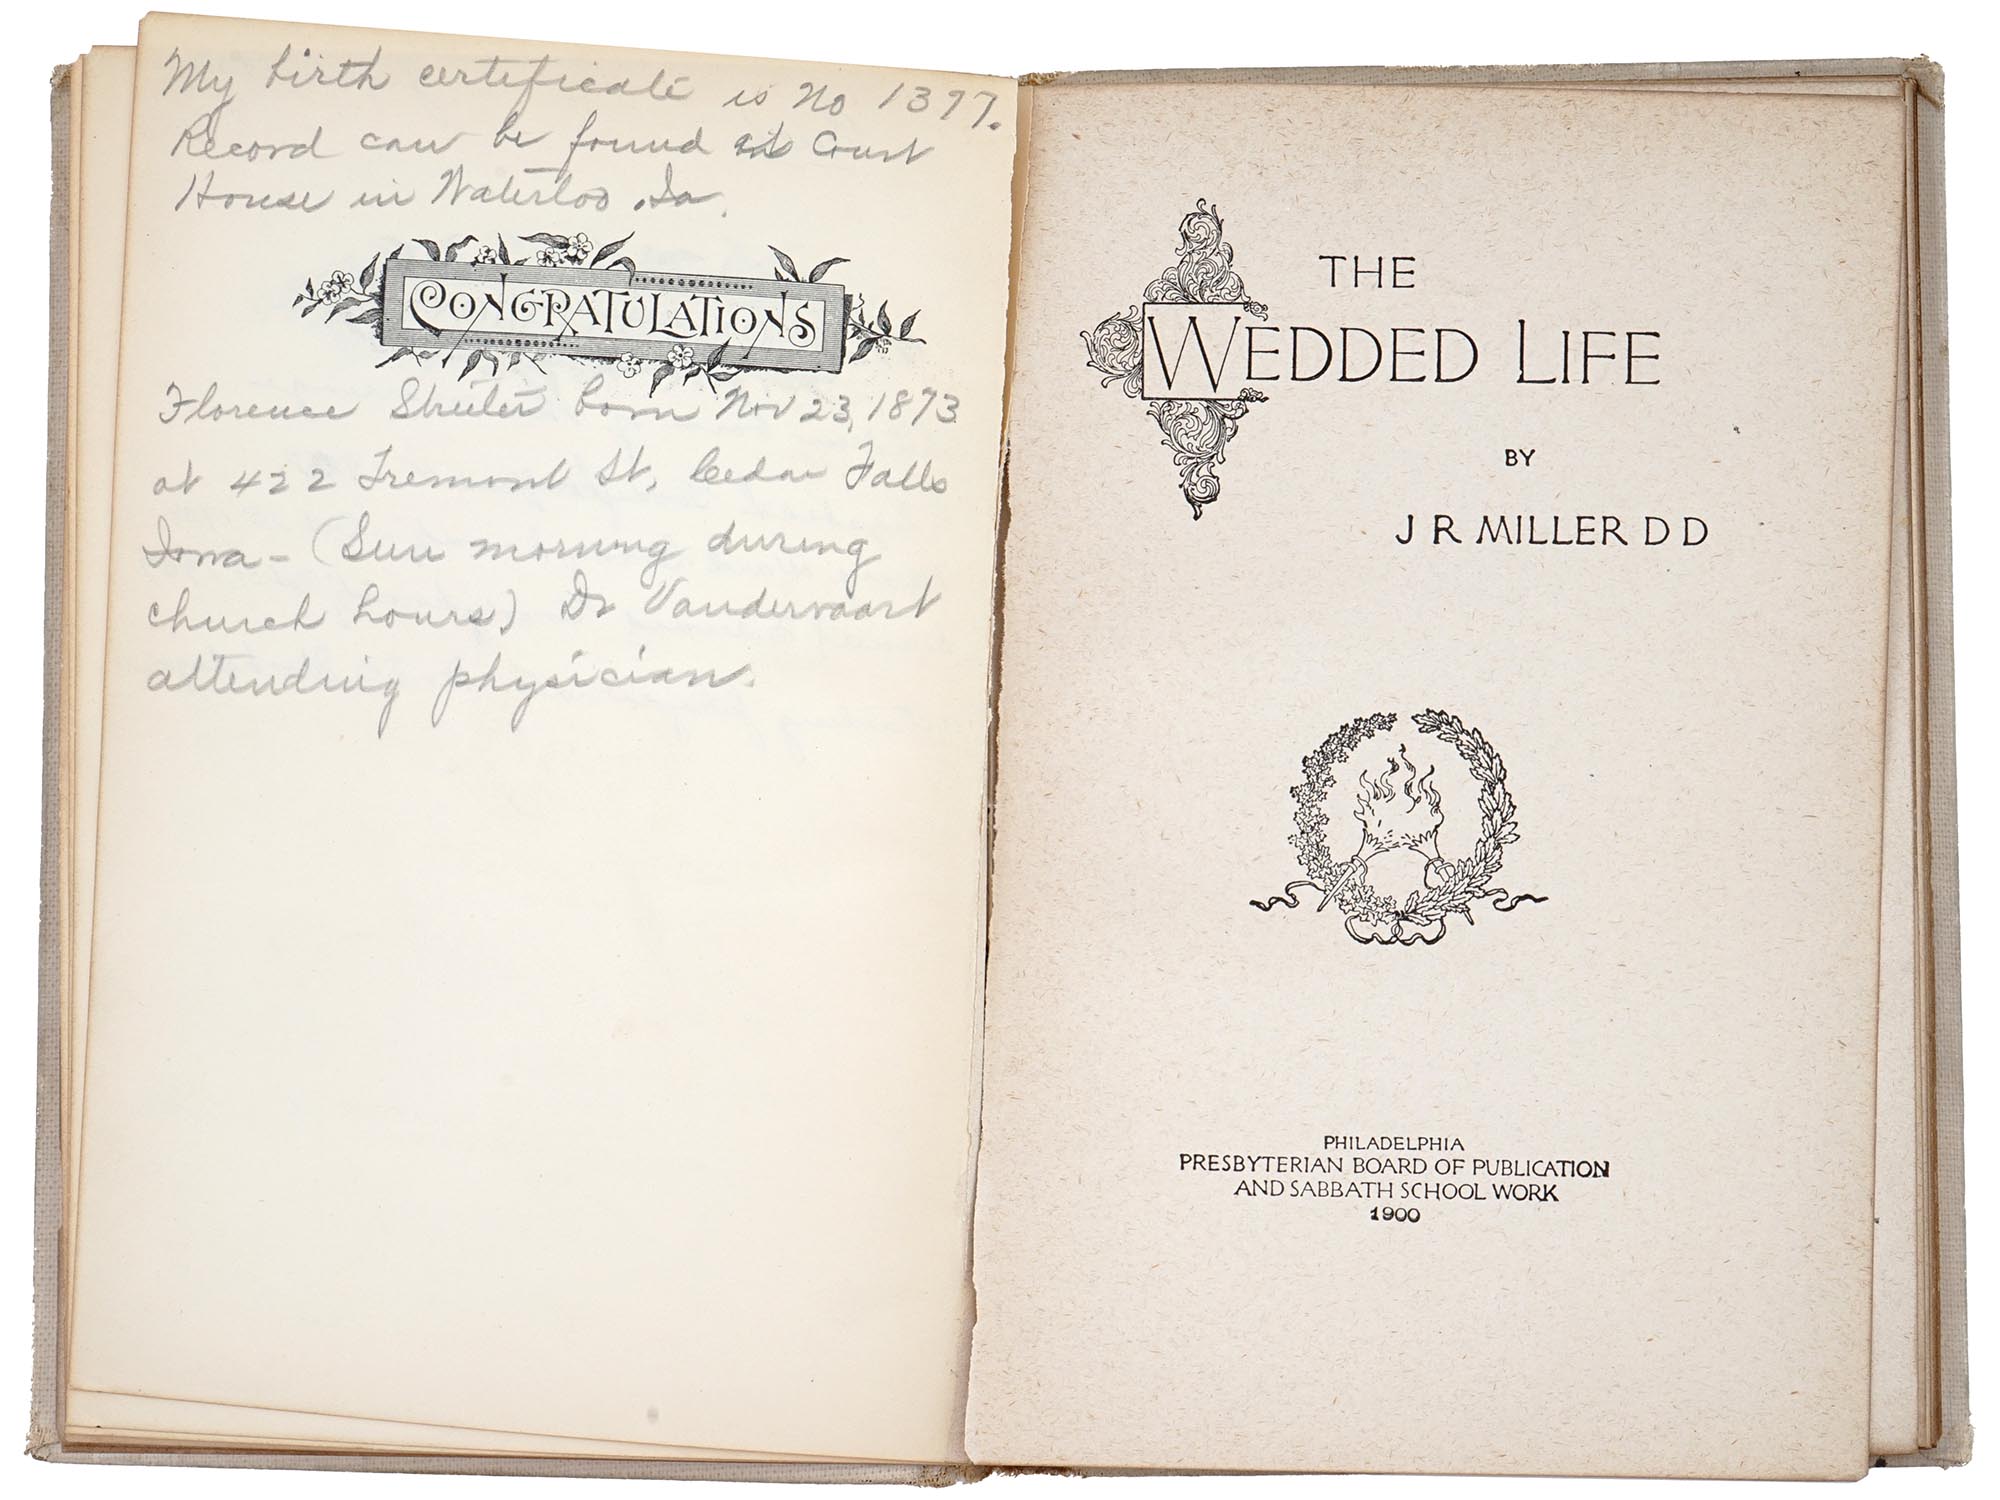 My birth certificate is No 1377.
Record can be found at Court
House in Waterloo, Ia.
CONGRATULATIONS
Florence Streeter born Nov 23, 1873
at 422 Tremont St, Cedar Falls
Iowa - (Sun morning during
church hours) Dr Vandervaart
attending physician.
THE
WEDDED LIFE
BY
J R MILLER D D
PHILADELPHIA
PRESBYTERIAN BOARD OF PUBLICATION
AND SABBATH SCHOOL WORK
1900